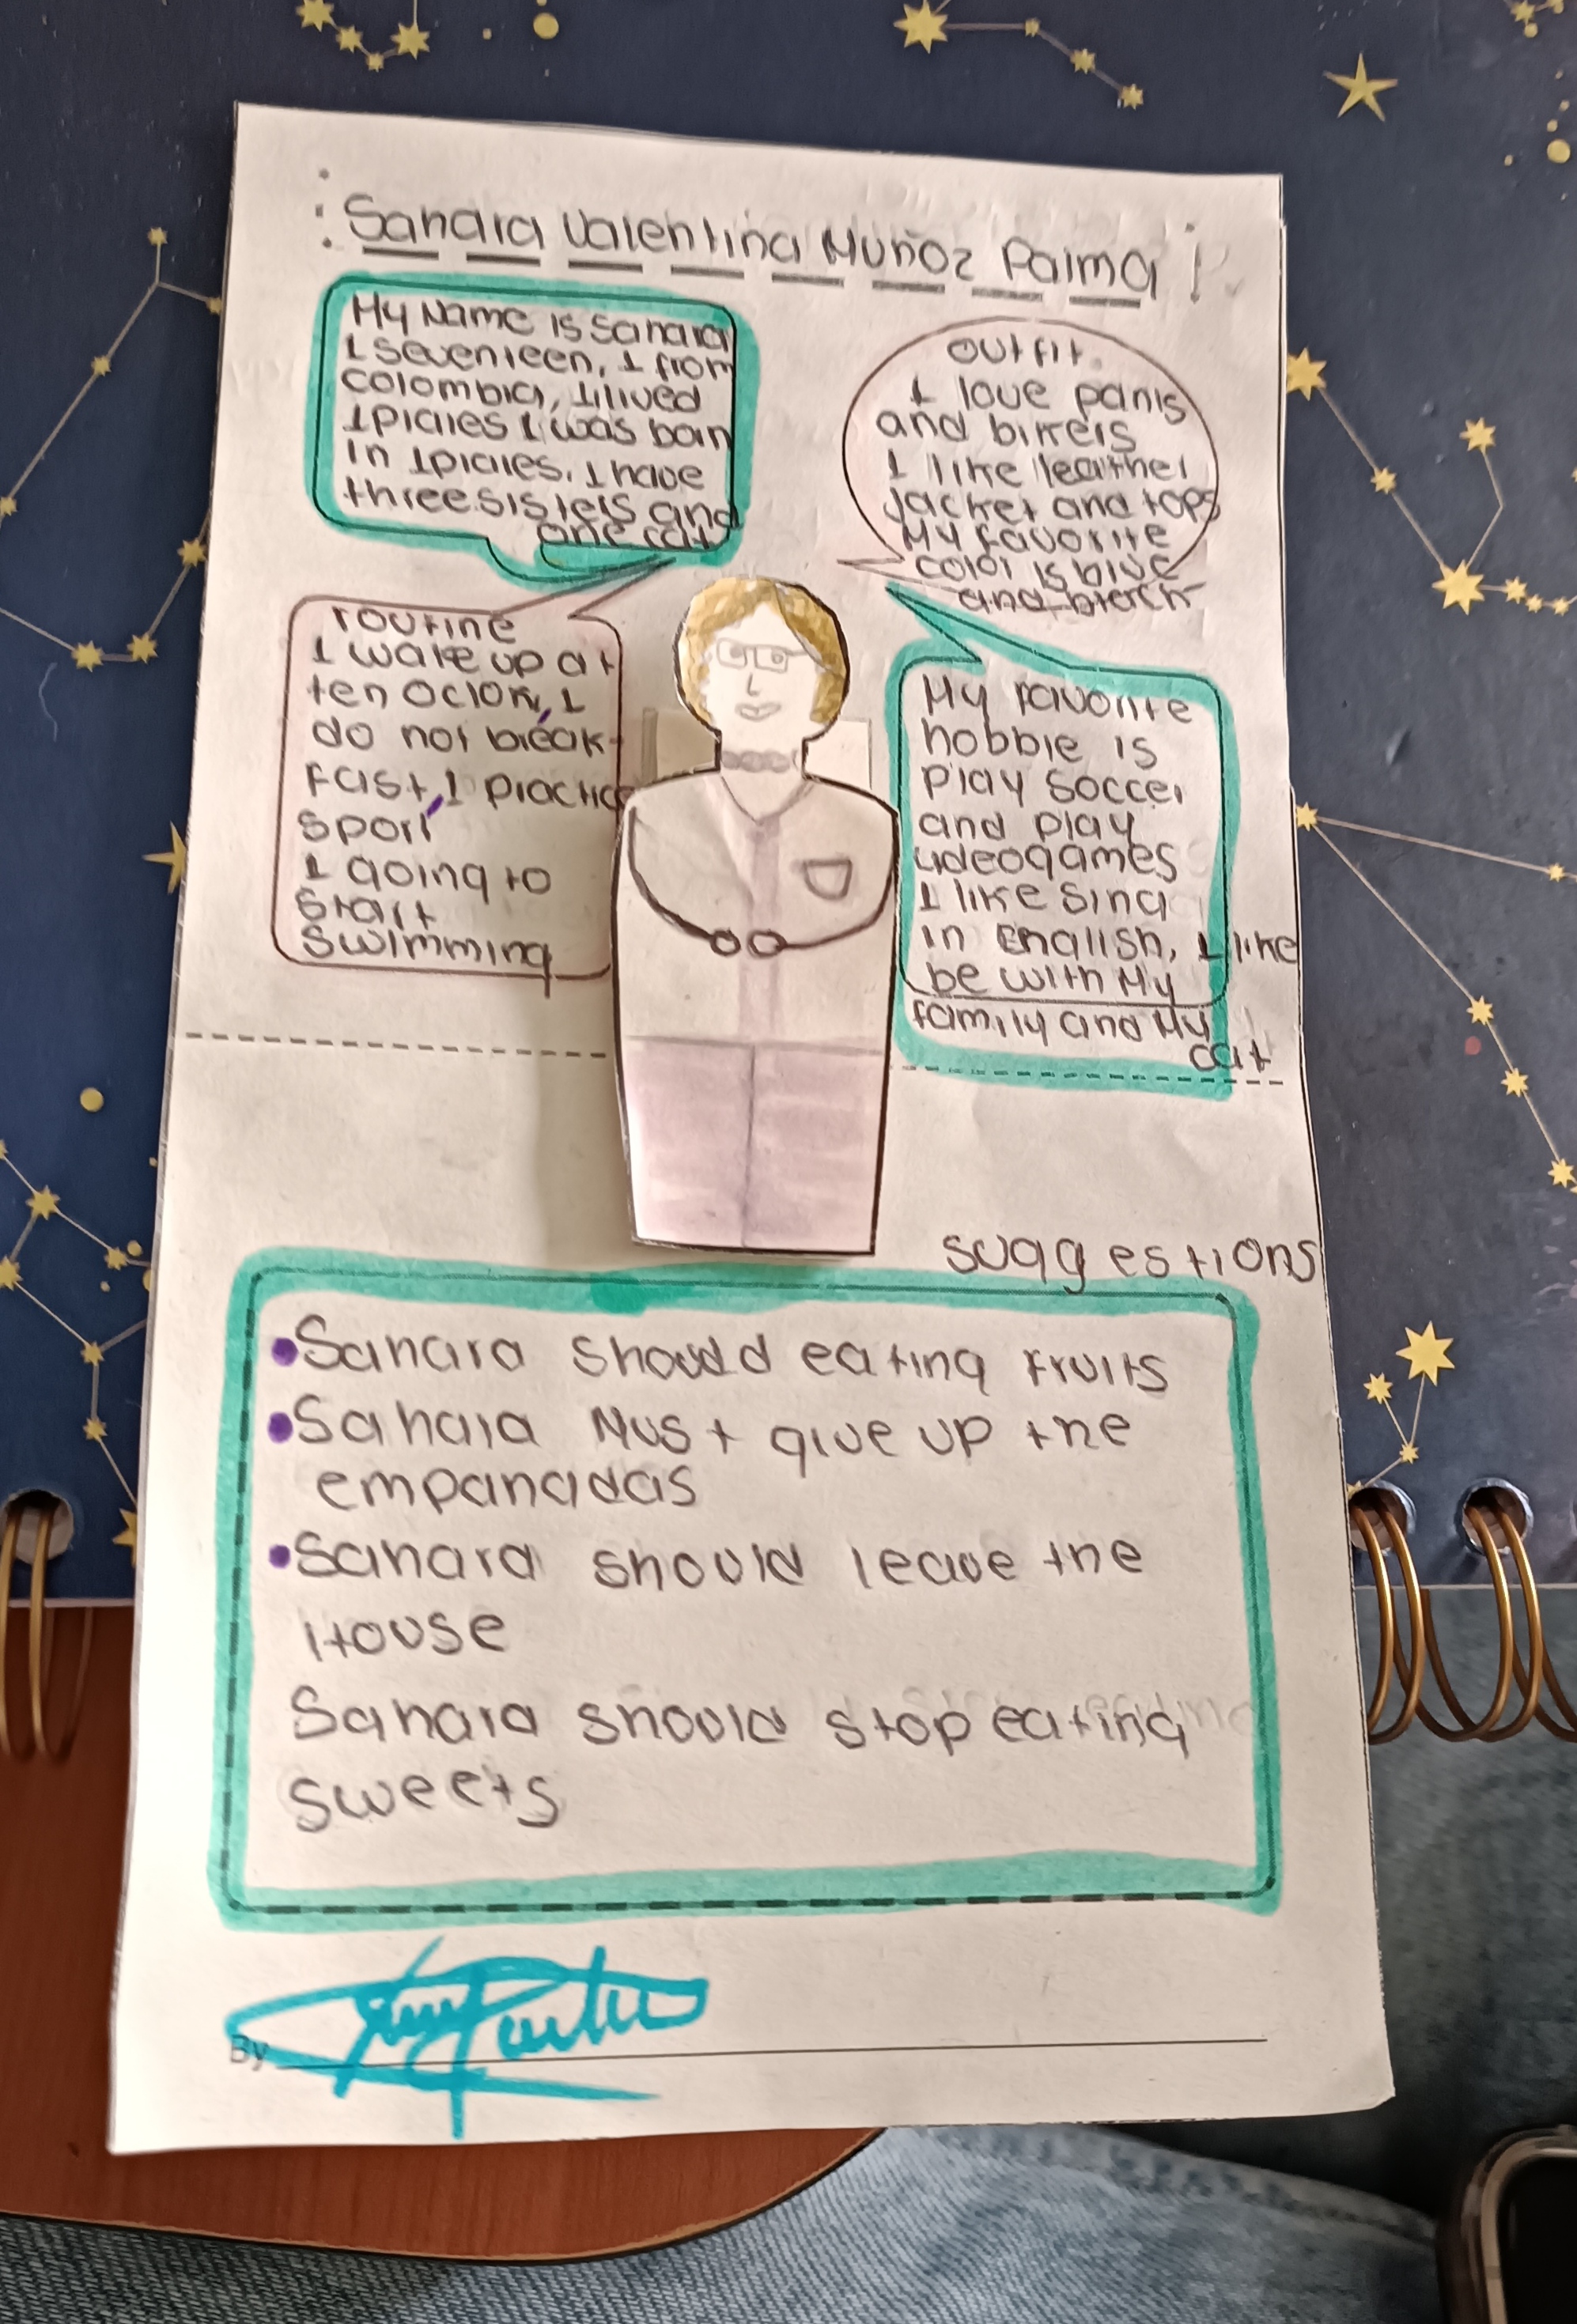 Sahara Valentina Muñoz Palma
My Name is Sahara
I seventeen, I from
colombia, I lived
Ipiales I was born
in Ipiales. I have
three sisters and
one cat
outfit.
I love pants
and bikers
I like leather
Jacket and tops
My favorite
color is blue
and black
routine
I wake up at
ten oclok, I
do not break-
fast, I practice
sport
I going to
start
swimming
My favorite
hobbie is
play soccer
and play
videogames
I like sing
in English, I like
be with My
family and My
cat
suggestions
•Sahara should eating fruits
•Sahara Must give up the
empanadas
•Sahara should leave the
House
Sahara should stop eating
sweets
By